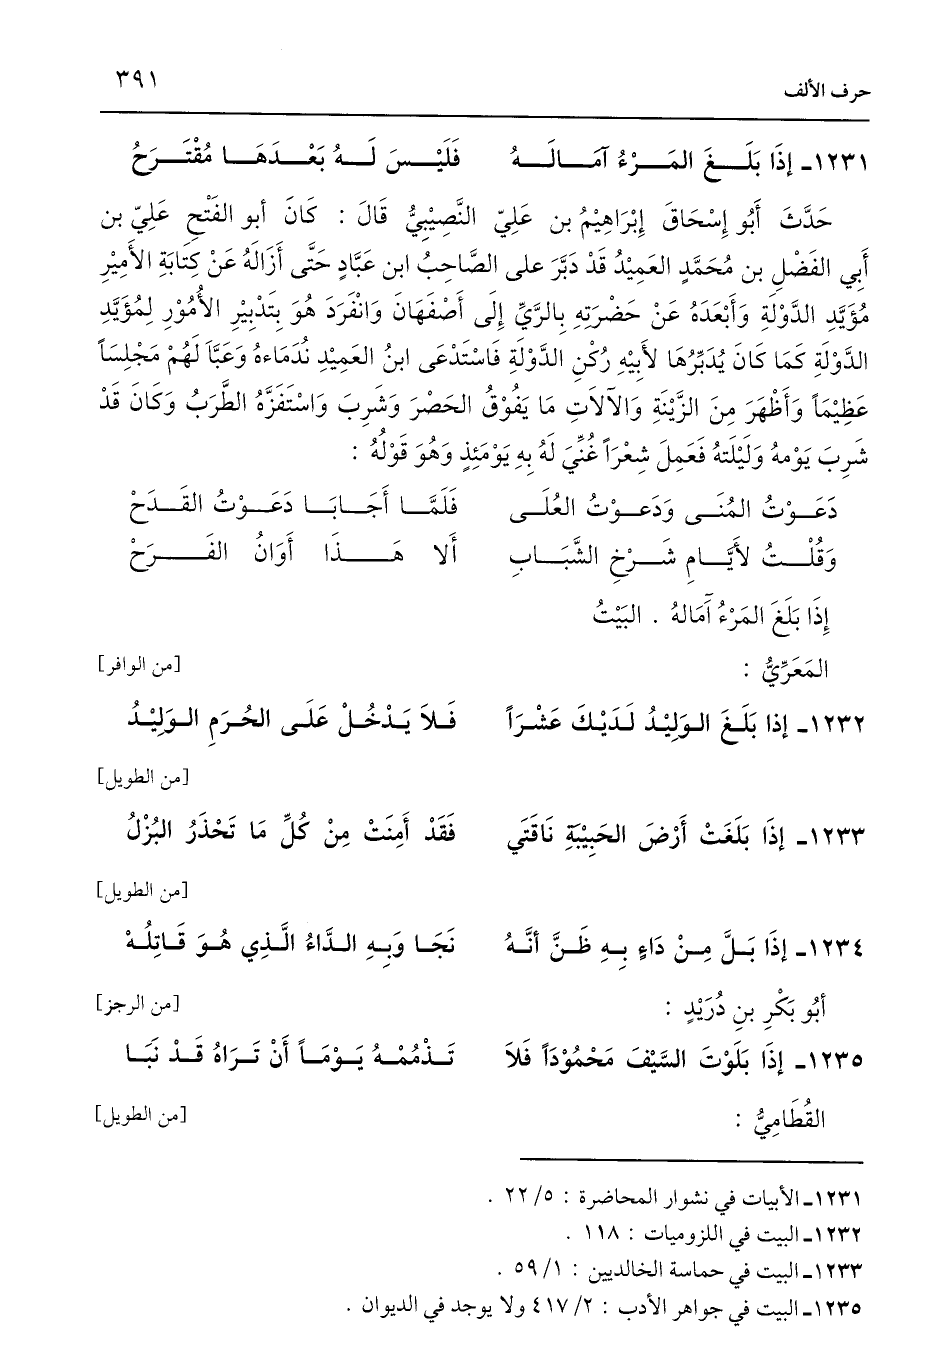 حرف الألف ٣٩١
١٢٣١ـ إذَا بَلَغَ المَرْءُ آمَالَهُ فَلَيْسَ لَهُ بَعْدَهَا مُقْتَرَحُ
حَدَّثَ أَبُو إسْحَاقَ إبْرَاهِيْمُ بن عَلِيّ النَّصِيْبِيُّ قَالَ : كَانَ أبو الفَتْحِ عَلِيّ بن
أَبِي الفَضْلِ بن مُحَمَّدٍ العَمِيْدُ قَدْ دَبَّرَ على الصَّاحِبُ ابن عَبَّادٍ حَتَّى أَزَالَهُ عَنْ كِتَابَةِ الأَمِيْرِ
مُؤَيَّدِ الدَّوْلَةِ وَأَبْعَدَهُ عَنْ حَضْرَتِهِ بِالرَّيِّ إلَى أَصْفَهَانَ وَانْفَرَدَ هُوَ بِتَدْبِيْرِ الأُمُوْرِ لِمُؤَيَّدِ
الدَّوْلَةِ كَمَا كَانَ يُدَبِّرُهَا لأَبِيْهِ رُكْنِ الدَّوْلَةِ فَاسْتَدْعَى ابنُ العَمِيْدِ نُدَمَاءهُ وَعَبَّا لَهُمْ مَجْلِسَاً
عَظِيْمَاً وَأَظْهَرَ مِنَ الزَّيْنَةِ وَالآلَاتِ مَا يَفُوْقُ الحَصْرَ وَشَرِبَ وَاسْتَفَزَّهُ الطَّرَبُ وَكَانَ قَدْ
شَرِبَ يَوْمهُ وَلَيْلَتهُ فَعَمِلَ شِعْرَاً غُنِّيَ لَهُ بِهِ يَوْمَئِذٍ وَهُوَ قَوْلُهُ :
دَعَوْتُ المُنَى وَدَعوْتُ العُلَى فَلَمَّا أَجَابَا دَعَوْتُ القَدَحْ
وَقُلْتُ لأَيَّامِ شَرْخِ الشَّبَابِ أَلَا هَذَا أَوَانُ الفَرَحْ
إِذَا بَلَغَ المَرْءُ آمَالهُ . البَيْتُ
المَعَرِّيُّ : [من الوافر]
١٢٣٢ـ إذا بَلَغَ الوَلِيْدُ لَدَيْكَ عَشْرَاً فَلاَ يَدْخُلْ عَلَى الحُرَمِ الوَلِيْدُ
[من الطويل]
١٢٣٣ـ إذَا بَلَغَتْ أَرْضَ الحَبِيْبَةِ نَاقَتِي فَقَدْ أَمِنَتْ مِنْ كُلِّ مَا تَحْذَرُ البُزْلُ
[من الطويل]
١٢٣٤ـ إذَا بَلَّ مِنْ دَاءٍ بِهِ ظَنَّ أنَّهُ نَجَا وَبِهِ الدَّاءُ الَّذِي هُوَ قَاتِلُهْ
أَبُو بَكْرِ بنِ دُرَيْدٍ : [من الرجز]
١٢٣٥ـ إذَا بَلَوْتَ السَّيْفَ مَحْمُوْدَاً فَلاَ تَذْمُمْهُ يَوْمَاً أَنْ تَرَاهُ قَدْ نَبَا
القُطَامِيُّ : [من الطويل]
١٢٣١ـ الأبيات في نشوار المحاضرة : ٥/ ٢٢ .
١٢٣٢ـ البيت في اللزوميات : ١١٨ .
١٢٣٣ـ البيت في حماسة الخالديين : ١/ ٥٩ .
١٢٣٥ـ البيت في جواهر الأدب : ٢/ ٤١٧ ولا يوجد في الديوان .